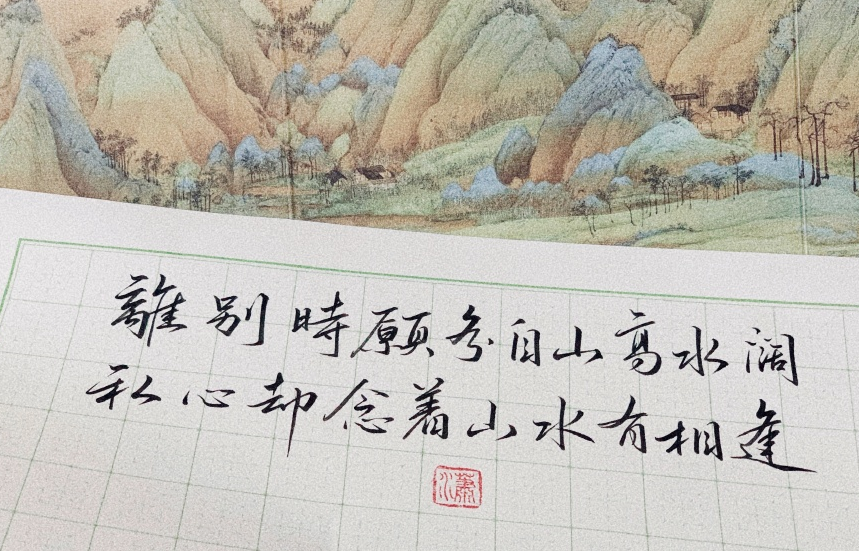 離别時願各自山高水阔
私心却念着山水有相逢
瀟